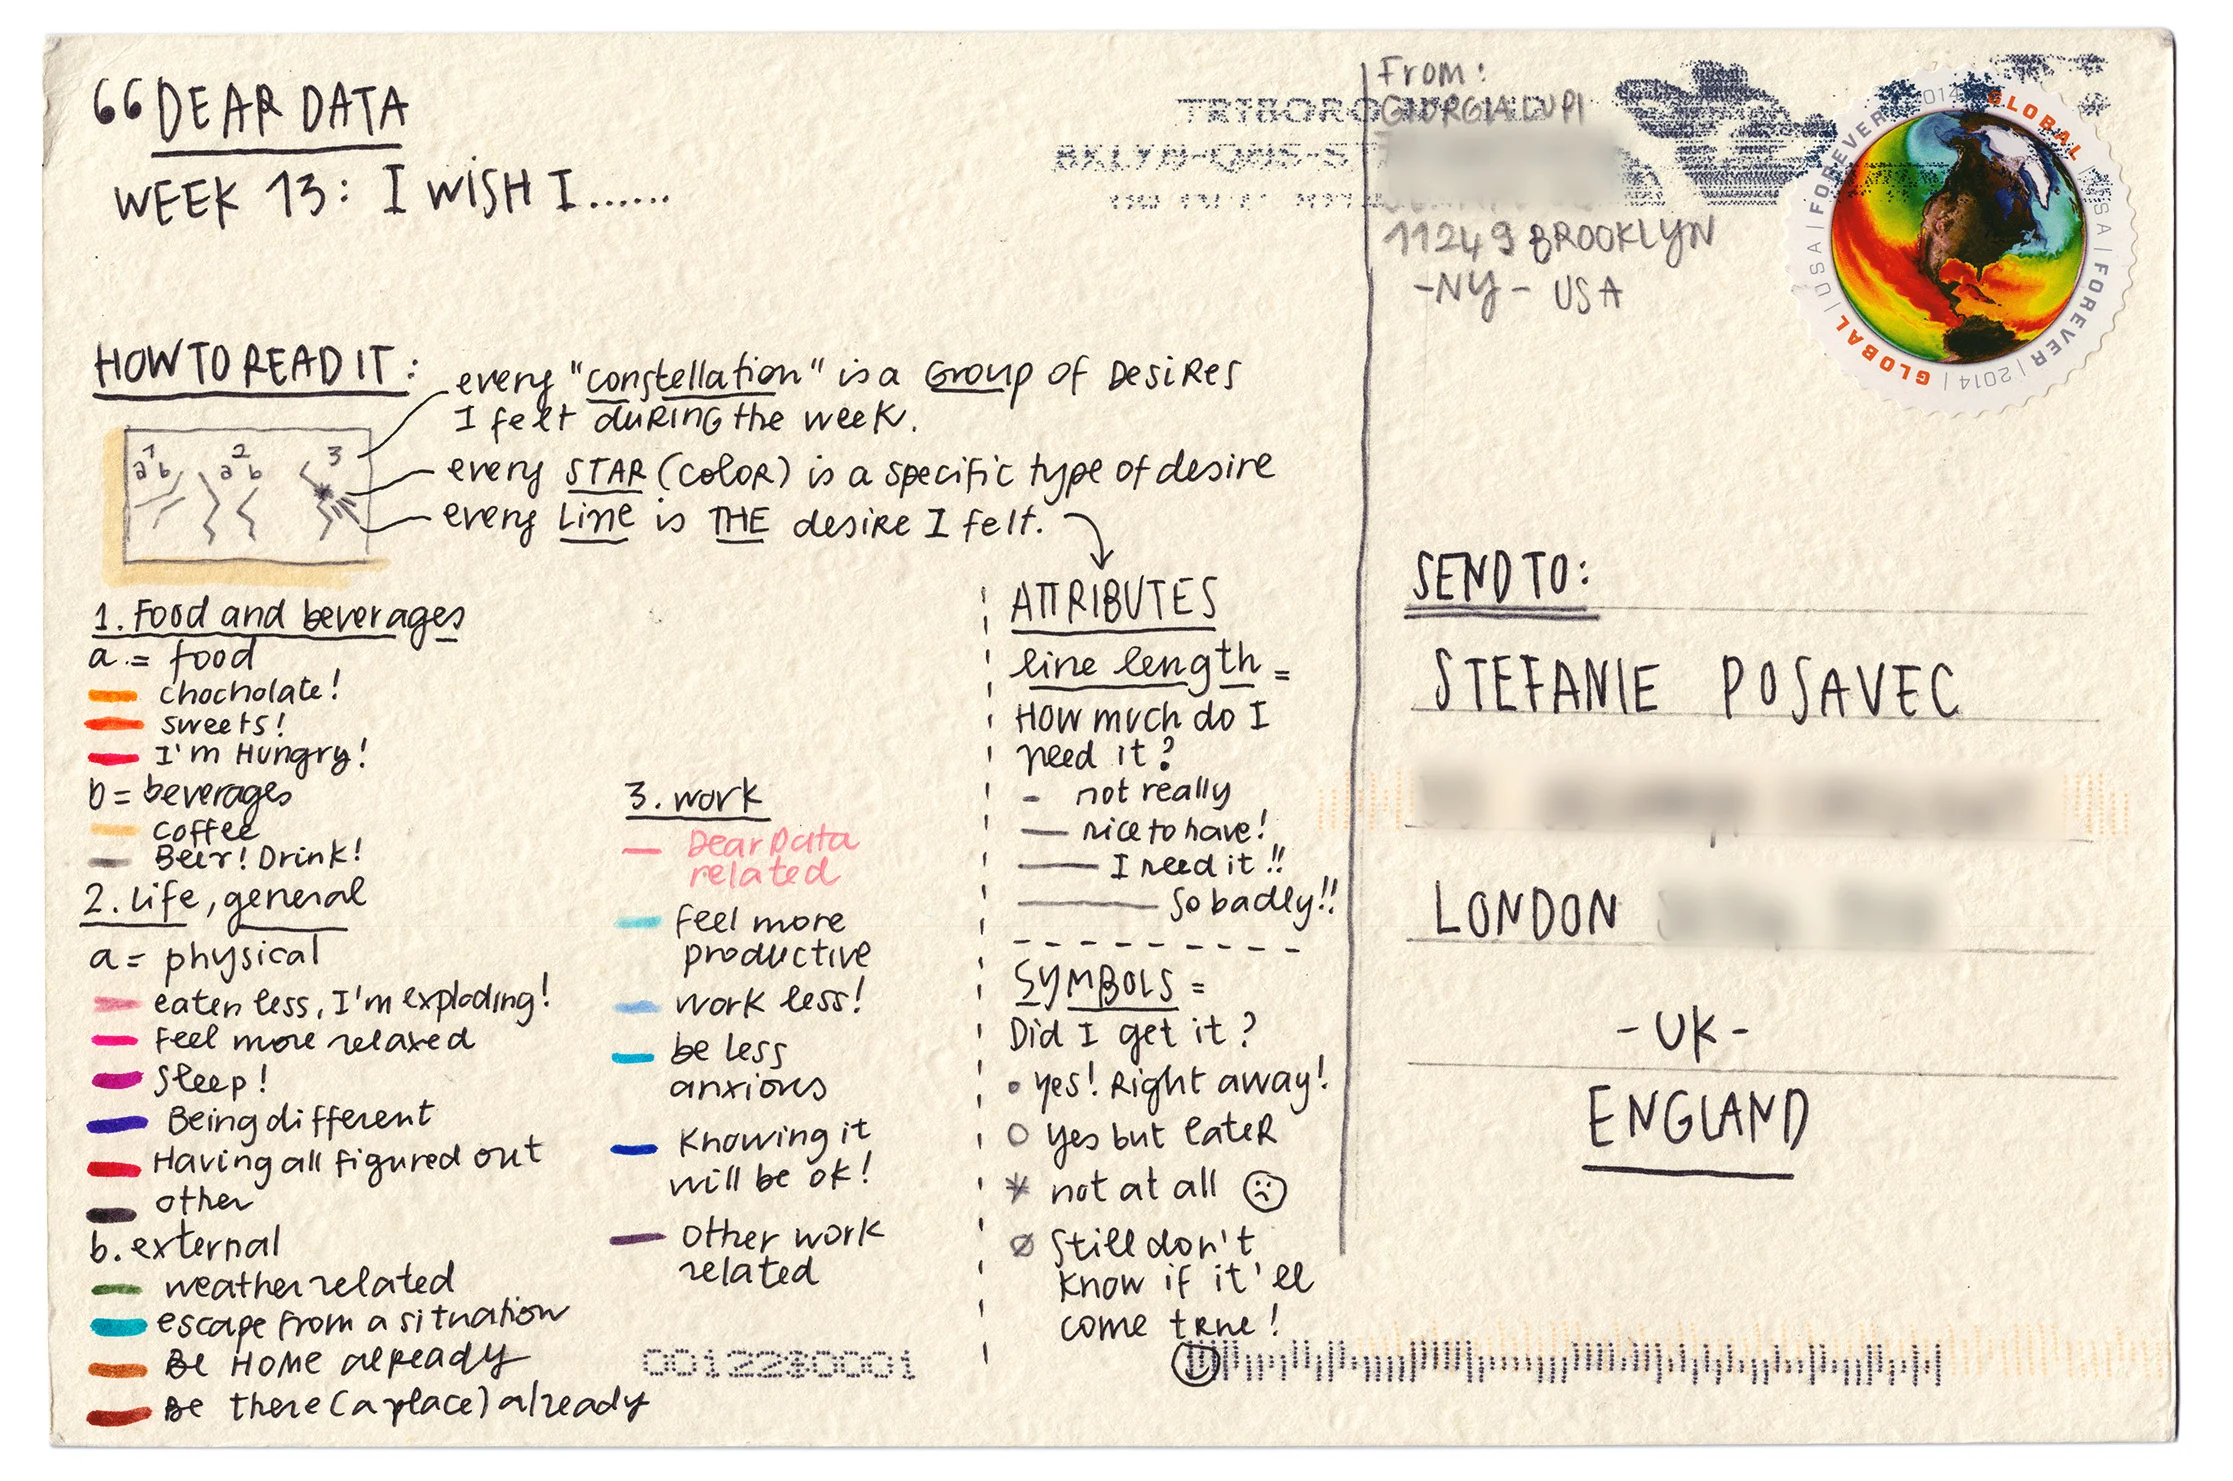 DEAR DATA
WEEK 13: I WISH I......
HOW TO READ IT:
every "constellation" is a GROUP OF DESIRES
I felt during the week.
every STAR (color) is a specific type of desire
every Line is THE desire I felt.
1 2 3
a b a b
1. Food and beverages
a.= food
chocholate!
sweets!
I'm Hungry!
b= beverages
coffee
Beer! Drink!
2. Life, general
a= physical
eaten less, I'm exploding!
Feel more relaxed
Sleep!
Being different
Having all figured out
other
b. external
weather related
escape from a situation
Be HOME already
Be there (a place) already
3. work
Dear Data
related
Feel more
productive
work less!
be less
anxious
Knowing it
will be ok!
Other work
related
ATTRIBUTES
line length =
How much do I
need it?
- not really
nice to have!
I need it!!
So badly!!
SYMBOLS =
Did I get it?
yes! Right away!
yes but later
not at all
Still don't
know if it'll
come true!
0012280001
From:
GIORGIA LUPI
11249 BROOKLYN
-NY- USA
GLOBAL | USA | FOREVER | 2014 | GLOBAL | USA | FOREVER | 2014
SEND TO:
STEFANIE POSAVEC
LONDON
-UK-
ENGLAND